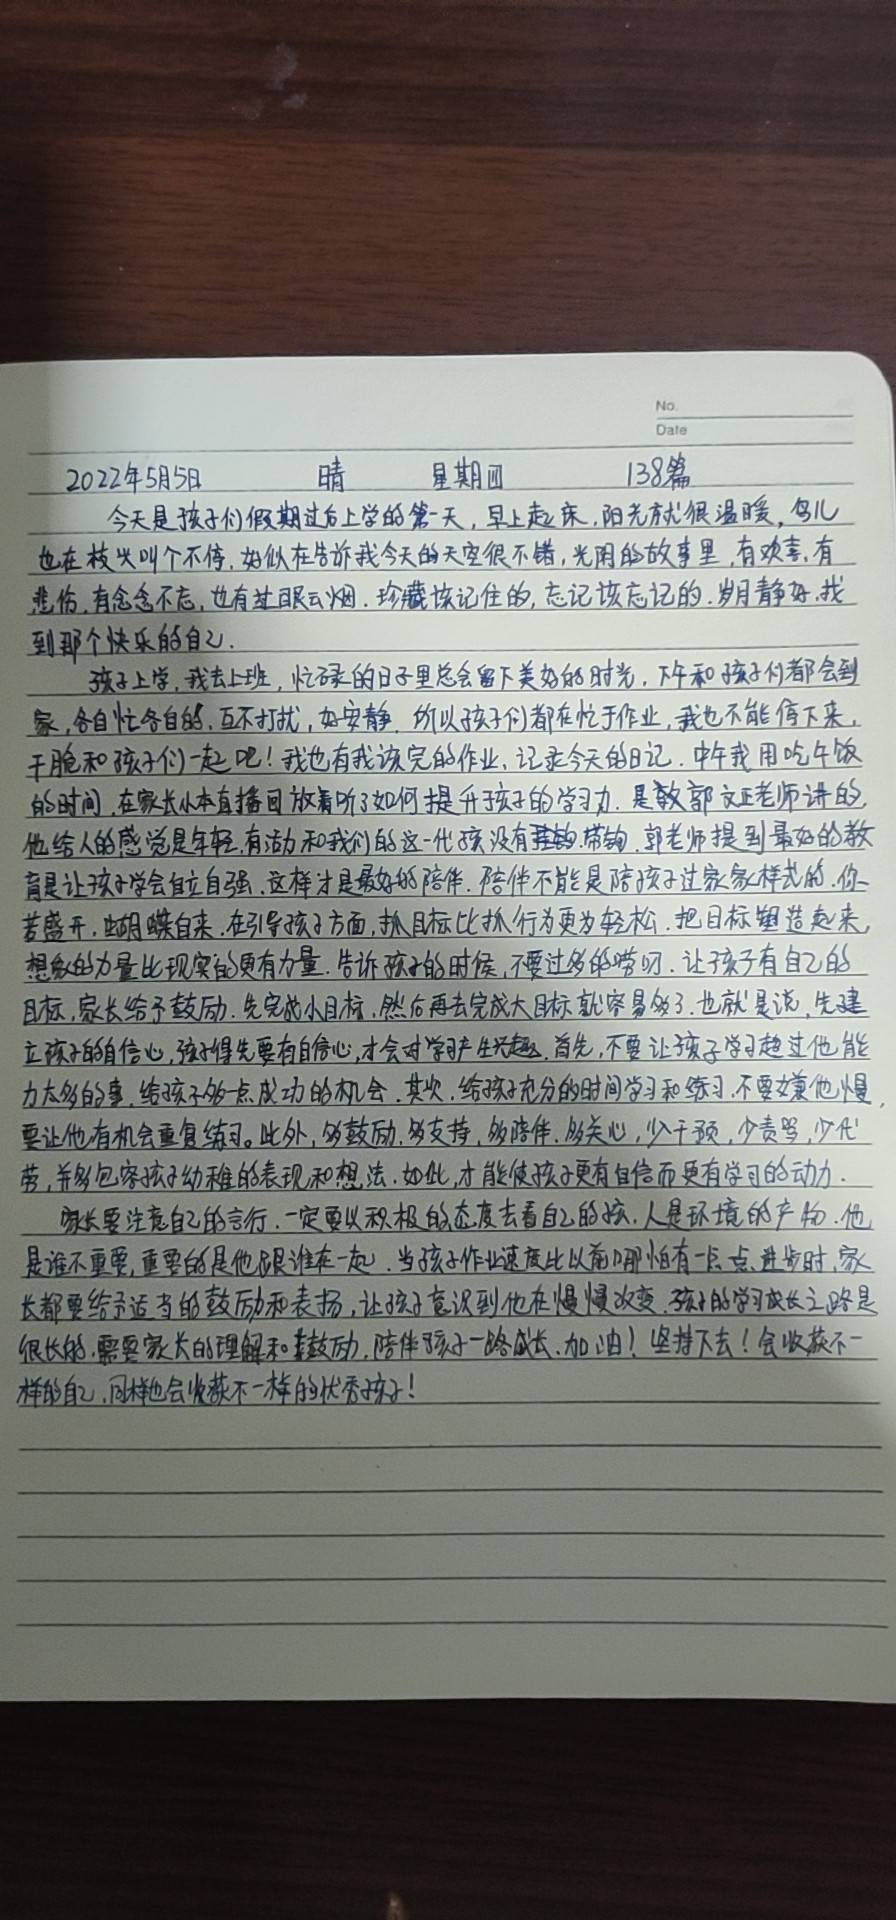 No.
Date
2022年5月5日 晴 星期四 138篇
今天是孩子们假期过后上学的第一天，早上起床，阳光就很温暖，鸟儿
也在枝头叫个不停，好似在告诉我今天的天空很不错，光阴的故事里，有欢喜，有
悲伤，有念念不忘，也有过眼云烟．珍藏该记住的，忘记该忘记的．岁月静好，找
到那个快乐的自己．
孩子上学，我去上班，忙碌的日子里总会留下美好的时光．下午和孩子们都会到
家，各自忙各自的，互不打扰，好安静．所以孩子们都在忙于作业，我也不能停下来，
干脆和孩子们一起吧！我也有我该完的作业、记录今天的日记．中午我用吃午饭
的时间，在家长小本直播回放看听了如何提升孩子的学习力．是敎郭文正老师讲的，
他给人的感觉是年轻，有活力和我们的这一代孩没有带钩．郭老师提到最好的教
育是让孩子学会自立自强．这样才是最好的陪伴．陪伴不能是陪孩子过家家样式的．你
若盛开，蝴蝶自来．在引导孩子方面，抓目标比抓行为更为轻松．把目标塑造起来，
想象的力量比现实的更有力量．告诉孩子的时候，不要过多的唠叨．让孩子有自己的
目标，家长给予鼓励．先完成小目标，然后再去完成大目标就容易多了．也就是说，先建
立孩子的自信心，孩子得先要有自信心，才会对学习产生兴趣．首先，不要让孩子学习超过他能
力太多的事．给孩子多一点成功的机会．其次，给孩子充分的时间学习和练习．不要嫌他慢，
要让他有机会重复练习。此外，多鼓励，多支持，多陪伴．多关心，少干预，少责骂，少代
劳，并多包容孩子幼稚的表现和想法．如此，才能使孩子更有自信而更有学习的动力．
家长要注意自己的言行．一定要以积极的态度去看自己的孩．人是环境的产物．他
是谁不重要，重要的是他跟谁在一起．当孩子作业速度比以前哪怕有一点点进步时，家
长都要给予适当的鼓励和表扬，让孩子意识到他在慢慢改变．孩子的学习成长之路是
很长的．需要家长的理解和鼓励，陪伴孩子一路成长．加油！坚持下去！会收获不一
样的自己，同样也会收获不一样的优秀孩子！